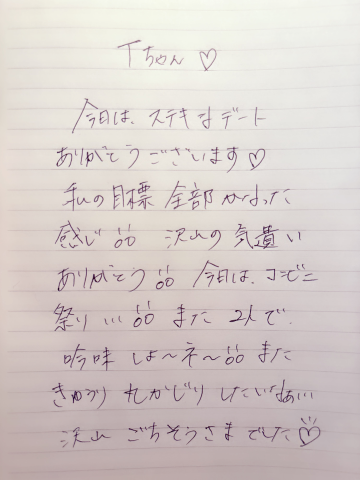 Tちゃん♡
今日は、ステキなデート
ありがとうございます♡
私の目標 全部かなった
感じ 沢山の気遣い
ありがとう 今日は、コンビニ
祭り… また 2人で
吟味 しよ〜ネ〜 また
きゅうり 丸かじり したいなぁ…
沢山 ごちそうさまでした♡